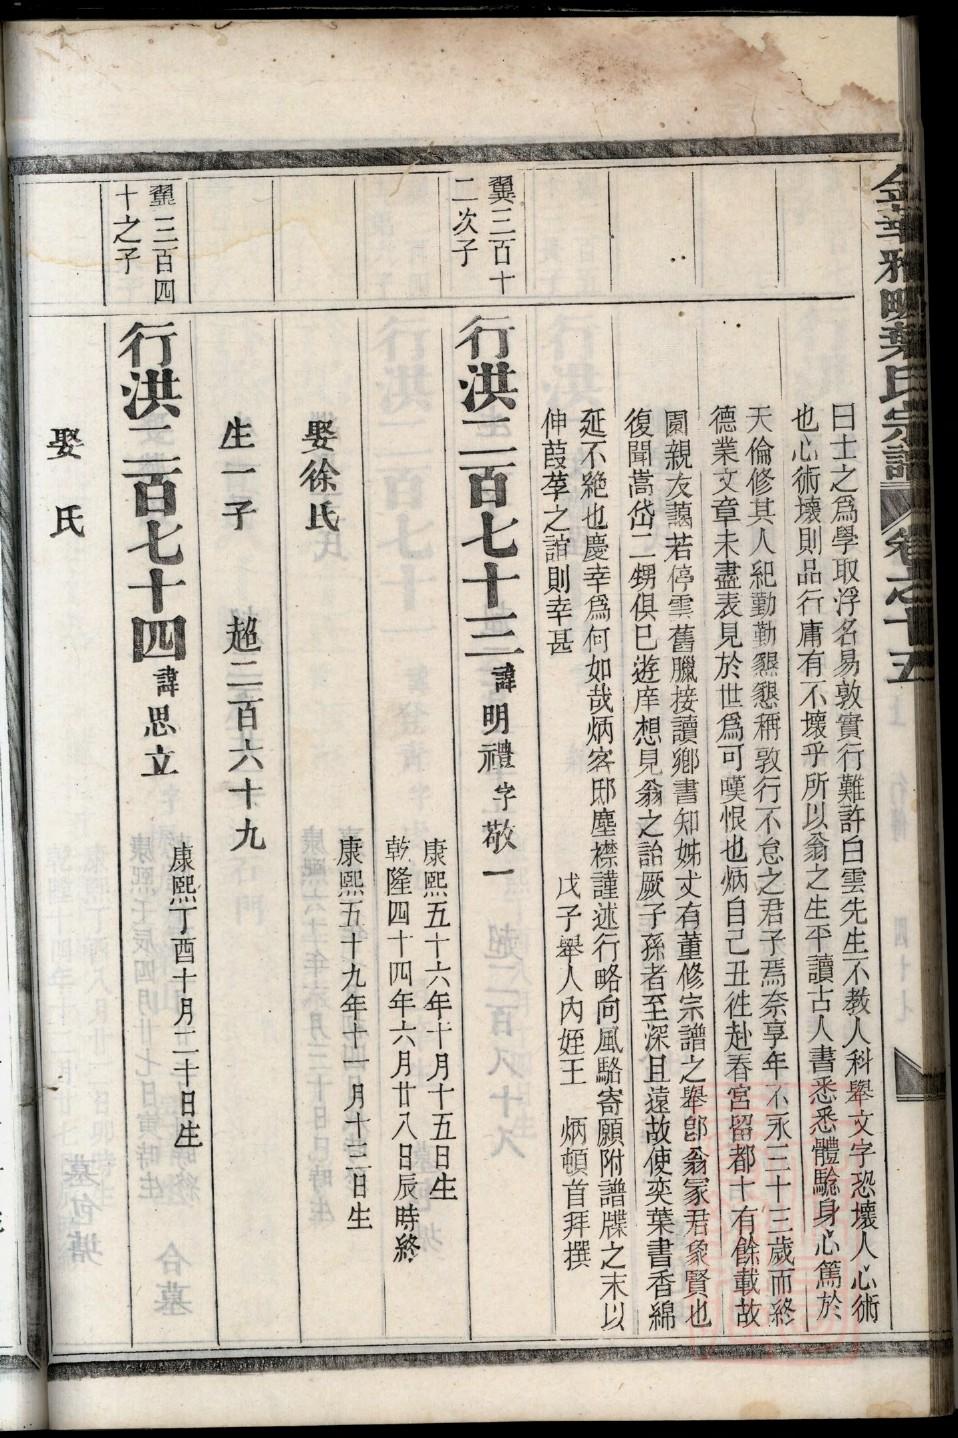 金華雅畈葉氏宗譜 卷之十五
曰士之爲學取浮名易敦實行難許白雲先生不教人科舉文字恐壞人心術
也心術壞則品行庸有不壞乎所以翁之生平讀古人書悉悉體驗身心篤於
天倫修其人紀勤勤懇懇稱敦行不怠之君子焉奈享年不永三十三歲而終
德業文章未盡表見於世爲可嘆恨也炳自己丑徃赴春宮留都十有餘載故
園親友藹若停雲舊臘接讀鄉書知姊丈有董修宗譜之舉卽翁冢君象賢也
復聞嵩岱二甥俱已遊庠想見翁之詒厥子孫者至深且遠故使奕葉書香綿
延不絶也慶幸爲何如哉炳客邸塵襟謹述行略向風駱寄願附譜牒之末以
伸葭莩之誼則幸甚
戊子舉人內姪王 炳頓首拜撰
翼三百十
二次子
行洪二百七十三諱明禮字敬一
康熙五十六年十月十五日生
乾隆四十四年六月廿八日辰時終
娶徐氏
康熙五十九年十一月十二日生
生一子 超二百六十九
翼三百四
十之子
行洪二百七十四諱思立
康熙丁酉十月二十日生
娶 氏